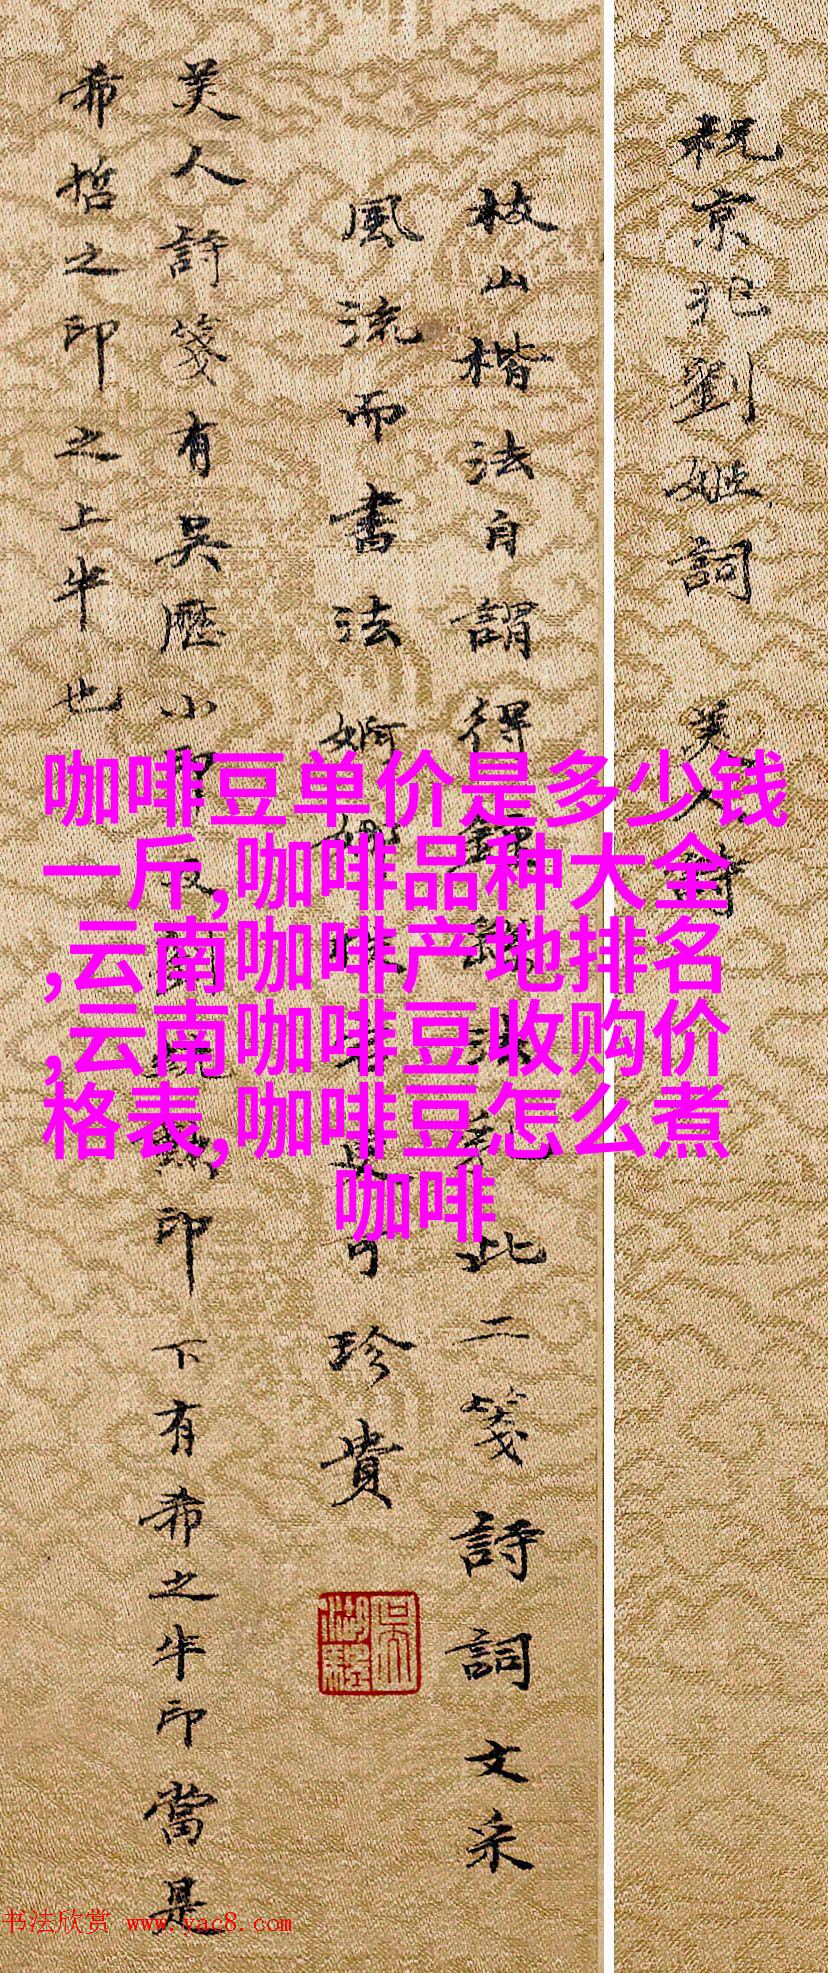 祝京兆劉姬詞 美人詩
枝山楷法自謂得鍾 此二箋詩詞文采
風流而書法婀娜 可珍貴
美人詩箋有吴歷小 印下有希之半印當是
希哲之印之上半也
咖啡豆单价是多少钱
一斤,咖啡品种大全
,云南咖啡产地排名
,云南咖啡豆收购价
格表,咖啡豆怎么煮
咖啡
书法欣赏 www.yac8.com